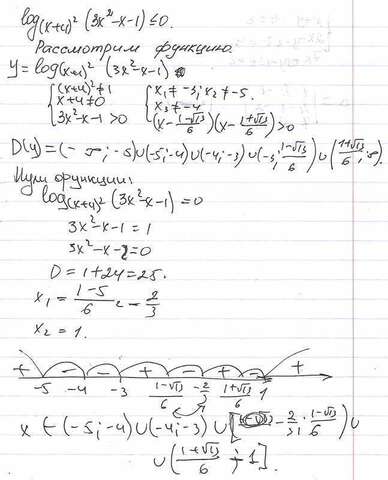 log(x+4)² (3x²-x-1) ≤ 0.
Рассмотрим функцию.
y = log(x+4)² (3x²-x-1)
{(x+4)² ≠ 1 {x₁ ≠ -3; x₂ ≠ -5.
x+4 ≠ 0 x₃ ≠ -4
3x²-x-1 > 0 (x - (1-√13)/6)(x - (1+√13)/6) > 0
D(y) = (-∞; -5)∪(-5;-4)∪(-4;-3)∪(-3; (1-√13)/6)∪((1+√13)/6; ∞).
Нули функции:
log(x+4)² (3x²-x-1) = 0
3x²-x-1 = 1
3x²-x-2 = 0
D = 1+24 = 25.
x₁ = (1-5)/6 = -2/3
x₂ = 1.
+ - - + - + - +
-5 -4 -3 (1-√13)/6 -2/3 (1+√13)/6 1
x ∈ (-5;-4)∪(-4;-3)∪[-2/3; (1-√13)/6)∪
∪((1+√13)/6; 1].